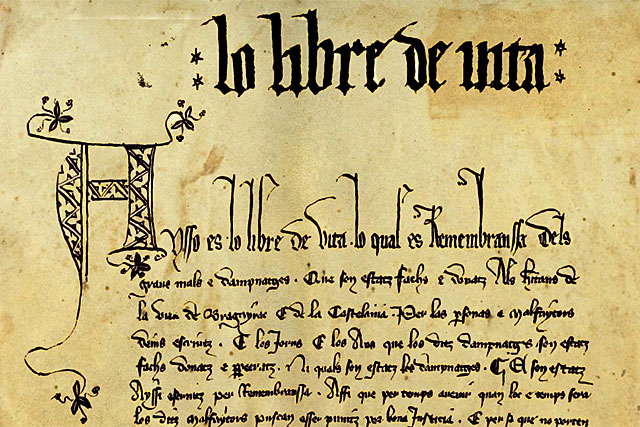 lo libre de vita
Aysso es lo libre de vita lo qual es Remembranssa dels
greus mals e dampnatges. Que son estatz fachs e donatz Als hitans de
la vila de Bragayrac E de la Castelania. Per las psonas e malfaytors
deins escriutz. E los Jorns E los Ans que los ditz dampnatges son estatz
fachs donatz e ppetratz. Ni quals son estatz los dampnatges. E son estatz
Ayssi escriutz per Remembranssa. Affi que per temps avenir quan loc e temps sera
los ditz malfaytors puscan esser punitz per bona Justicia. E per so que no porten